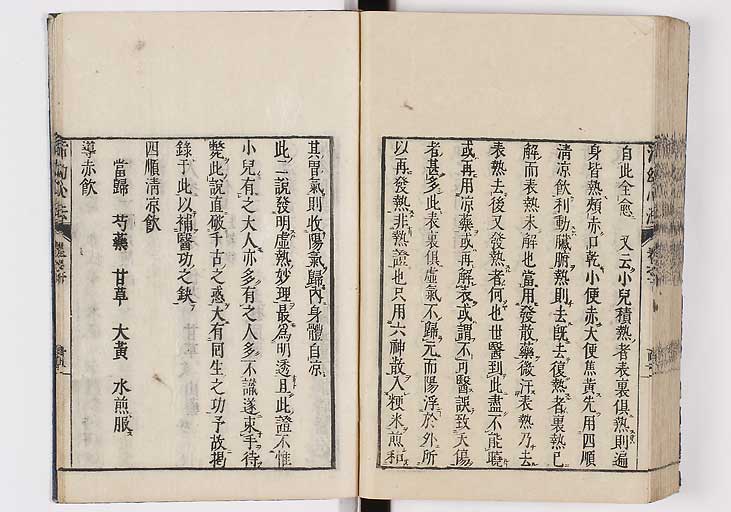 自此全愈　又云小兒積熱者表裏俱熱則遍
身皆熱頰赤口乾小便赤大便焦黃先用四順
清凉飲利動臟腑熱則去既去復熱者裏熱已
解而表熱未解也當用發散藥微汗表熱乃去
表熱去後又發熱者何也世醫到此盡不能曉
或再用凉藥或再解表或謂不可醫誤致夭傷
者甚多此表裏俱虛氣不歸元而陽浮於外所
以再發熱非熱證也只用六神散入粳米煎和
其胃氣則收陽氣歸內身體自凉
此二說發明虛熱妙理最爲明透且此證不惟
小兒有之大人亦多有之人多不識遂束手待
斃此說直破千古之惑大有囘生之功予故揭
錄于此以補醫功之缺
四順清凉飲
當歸　芍藥　甘草　大黃　水煎服
導赤飲